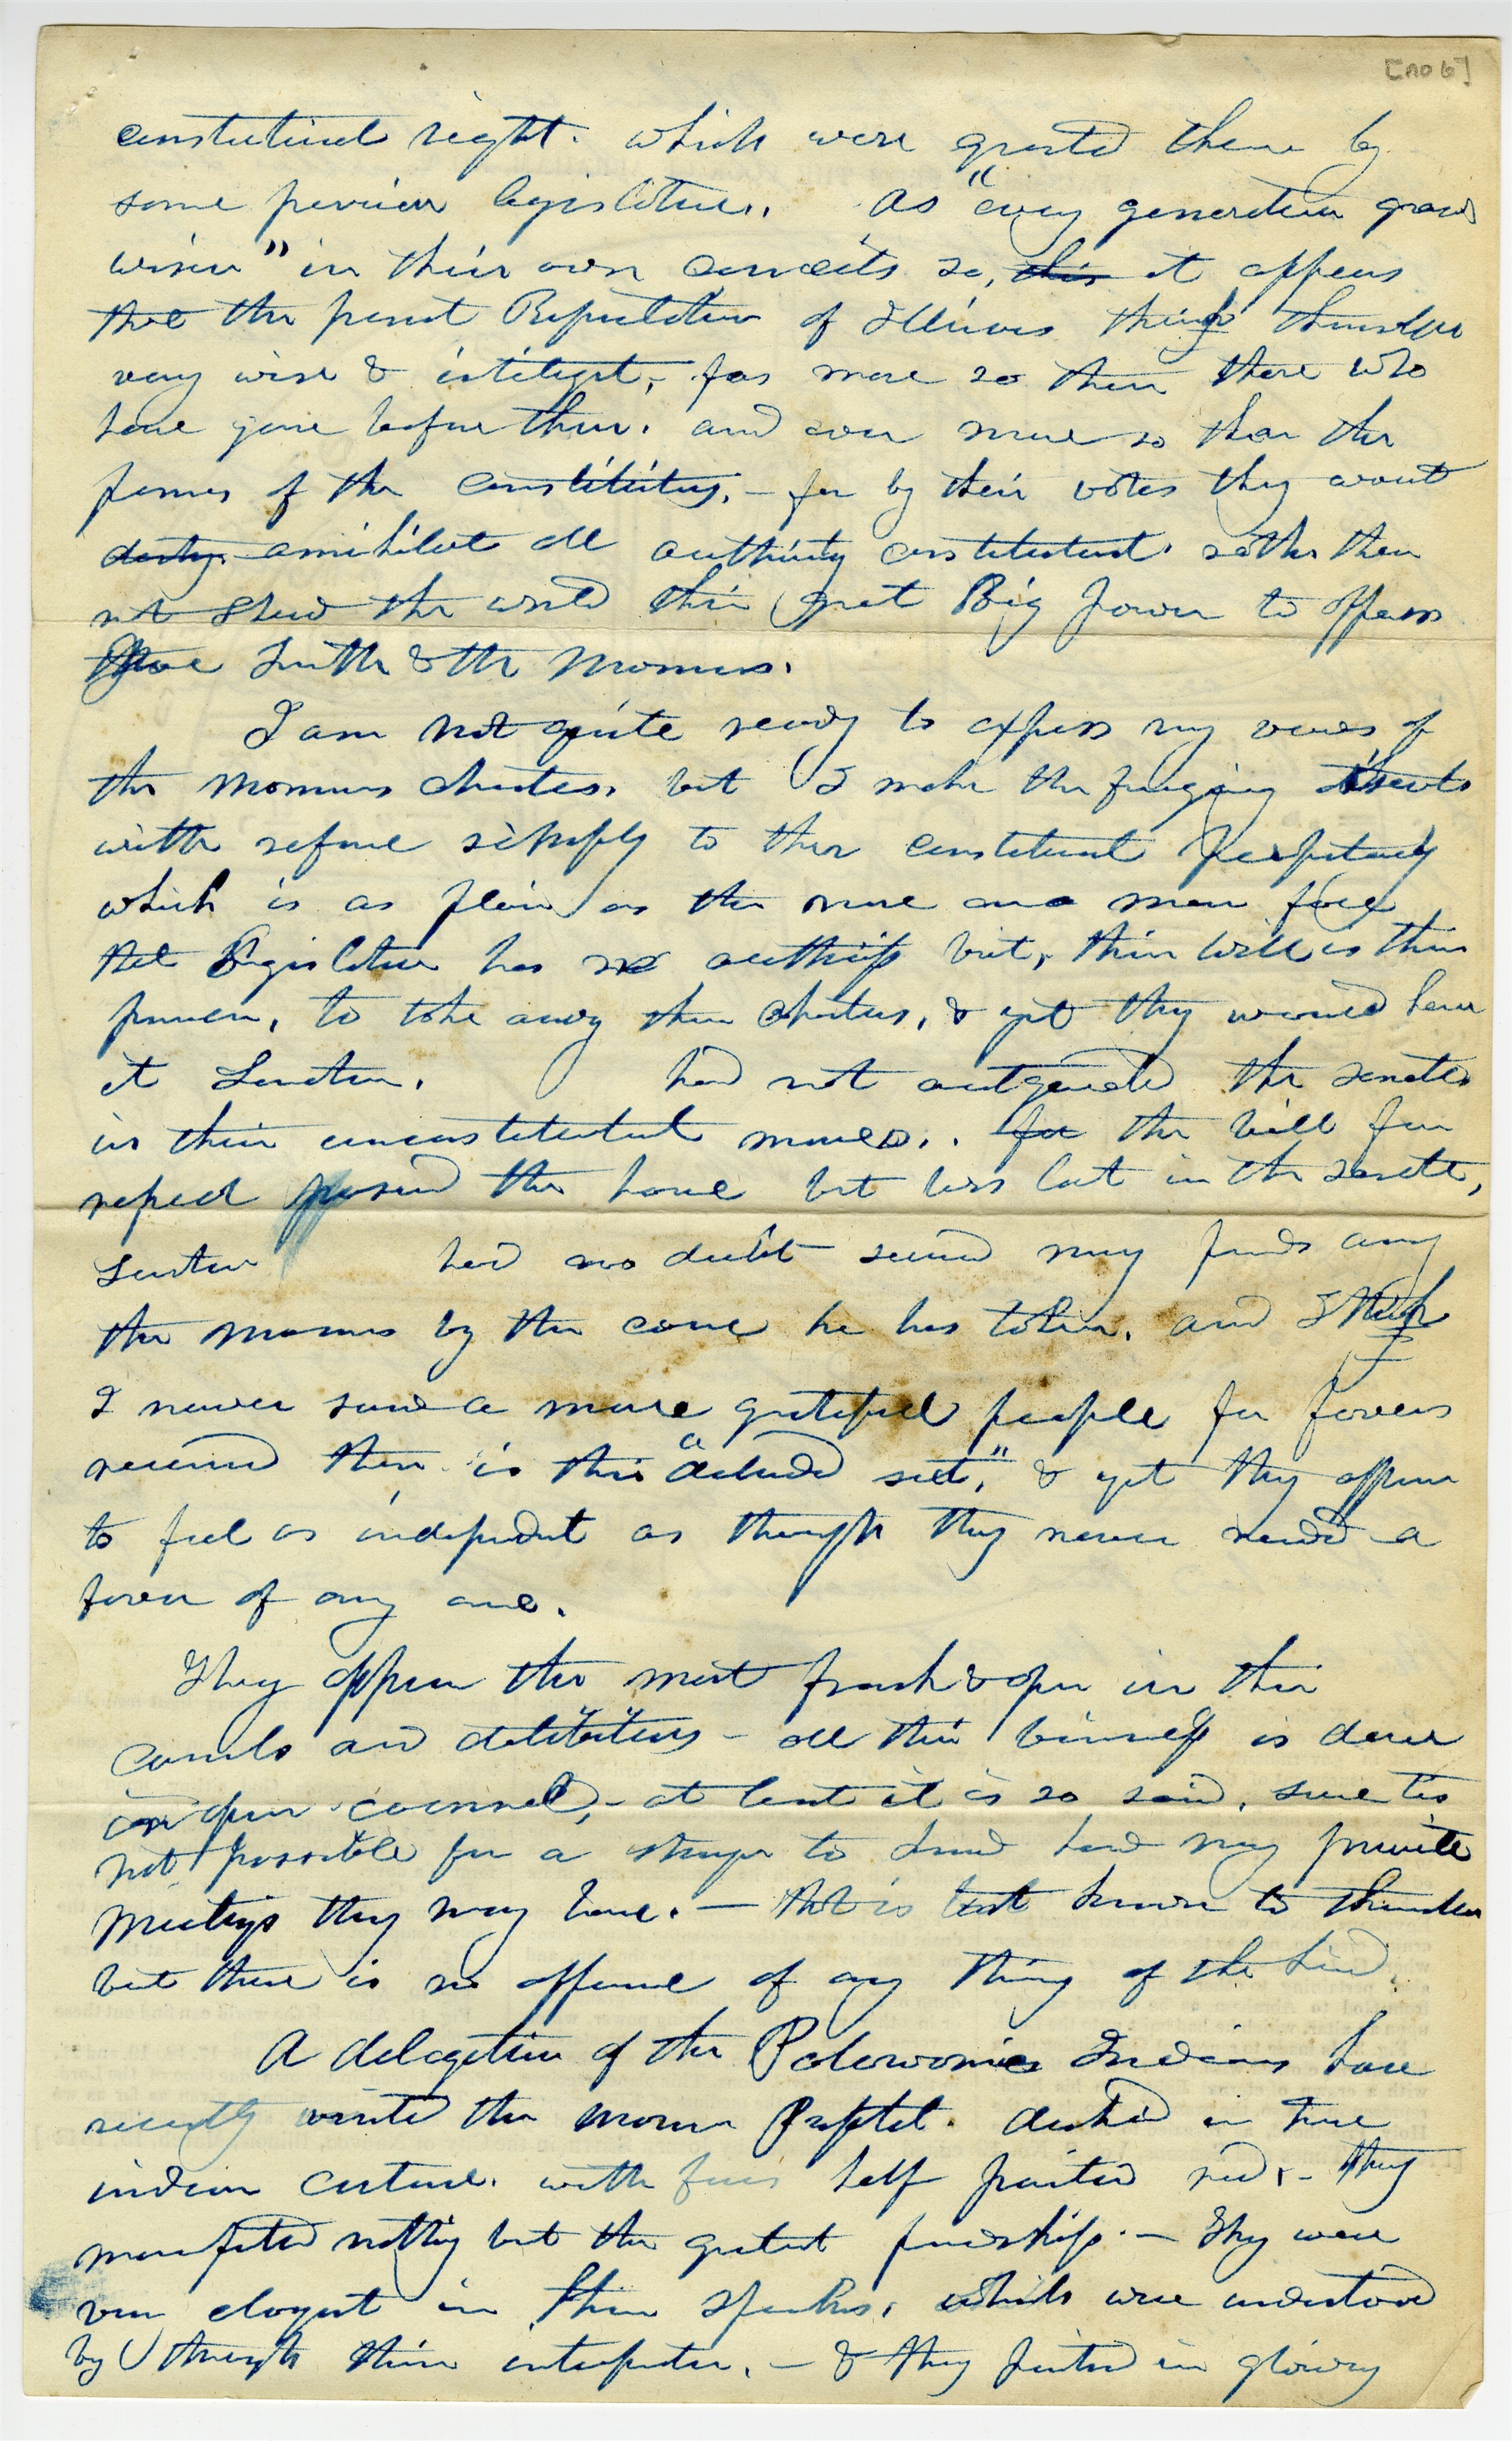 [no 6]
constitutional right. which were granted them by
some previous legislature. As "every generation grows
wiser" in their own conceits so, this it appears
that the present Representatives of Illinois think themselves
very wise & intelligent, far more so then those who
have gone before them. and even more so than the
framers of the constitution, - for by their votes they would
destroy annihilate all authority constitutional. rather then
not shew the world their great Big power to oppress
Joe Smith & the Mormons.
I am not quite ready to express my views of
the Mormons charters, but I make the foregoing
with refrence simply to their constitutional perpetuity
which is as plain as the nose on a mans face
the Legislature has no authority but, their will is their
power, to take away their charters, & yet they would have
it Senator. had not outgeneraled the senate
in their unconstitutional moves.. for the bill for
repeal passed the house but was lost in the senate,
Senator had no doubt secured many friends among
the mormons by the course he has taken. and I think
I never saw a more grateful people for favors
received then is this "deluded set," & yet they appear
to feel as independent as though they never needed a
favor of any one.
They appear the most frank & open in their
councils and deliberations - all their business is done
in open council, - at least it is so said, sure tis
not possible for a stranger to know how many private
meetings they may have. - that is best known to themselves
but there is no appearance of any thing of the kind.
A delegation of the Potowomies Indians have
recently visited the mormon Prophet. decked in true
indian costume. with faces half painted red. - they
manifested nothing but the greatest friendship. - They were
very eloquent in their speeches, which were understood
by through their interpreter. - & they in glowing